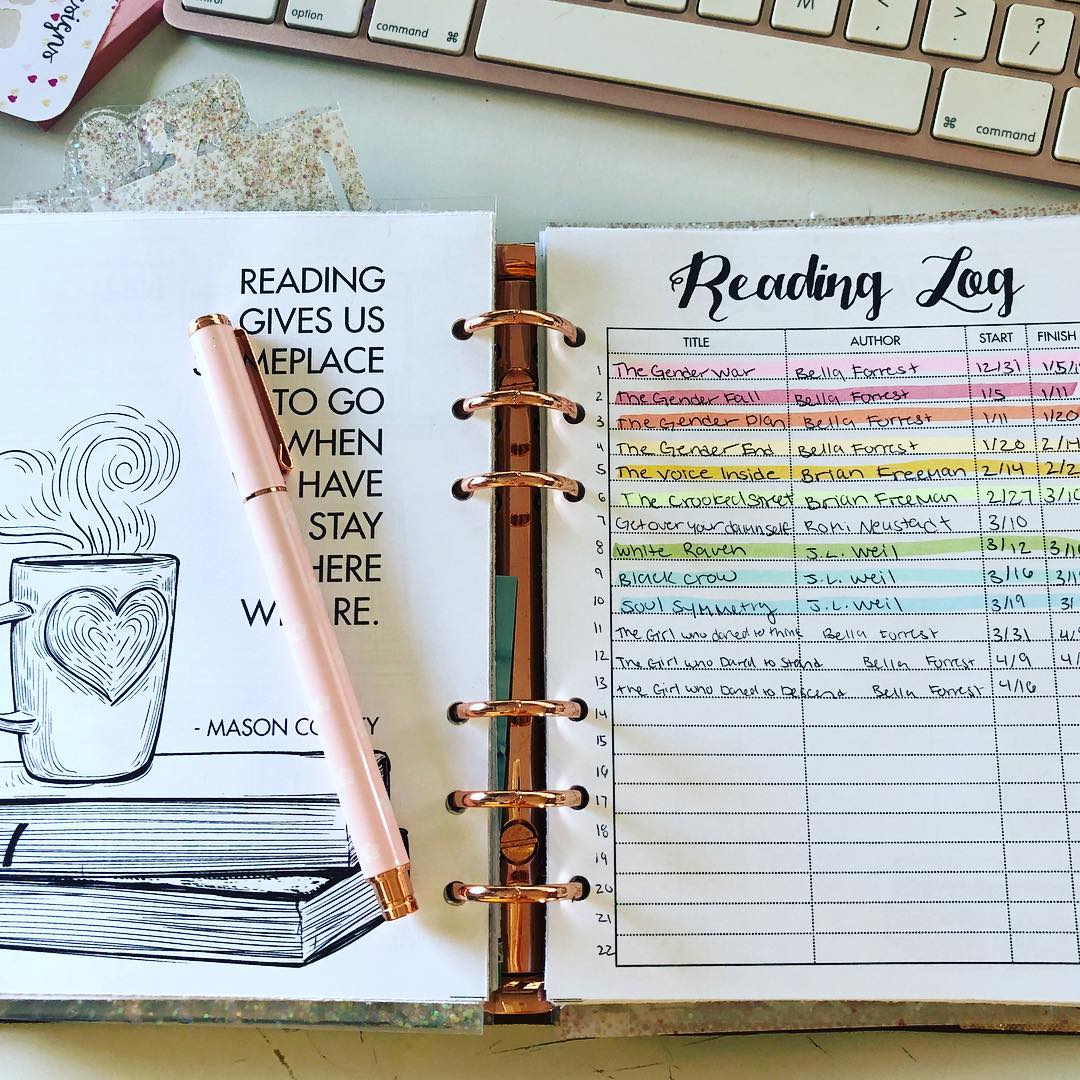 option
command ⌘
M
< ,
> .
? /
⌘ command
READING
GIVES US
MEPLACE
TO GO
WHEN
HAVE
STAY
HERE
RE.
- MASON
Reading Log
TITLE AUTHOR START FINISH
1 The Gender War Bella Forrest 12/31 1/5/
2 The Gender Fall Bella Forrest 1/5 1/11
3 The Gender Plan Bella Forrest 1/11 1/20
4 The Gender End Bella Forrest 1/20 2/14
5 The Voice Inside Brian Freeman 2/14 2/2
6 The Crooked Street Brian Freeman 2/27 3/10
7 Get over your damn self Romi Neustadt 3/10
8 White Raven J.L. Weil 3/12 3/16
9 Black Crow J.L. Weil 3/16 3/1
10 Soul Symmetry J.L. Weil 3/19 3/
11 The Girl who dared to think Bella Forrest 3/31 4/
12 The Girl who Dared to Stand Bella Forrest 4/9 4/
13 the Girl who Dared to Descend Bella Forrest 4/16
14
15
16
17
18
19
20
21
22